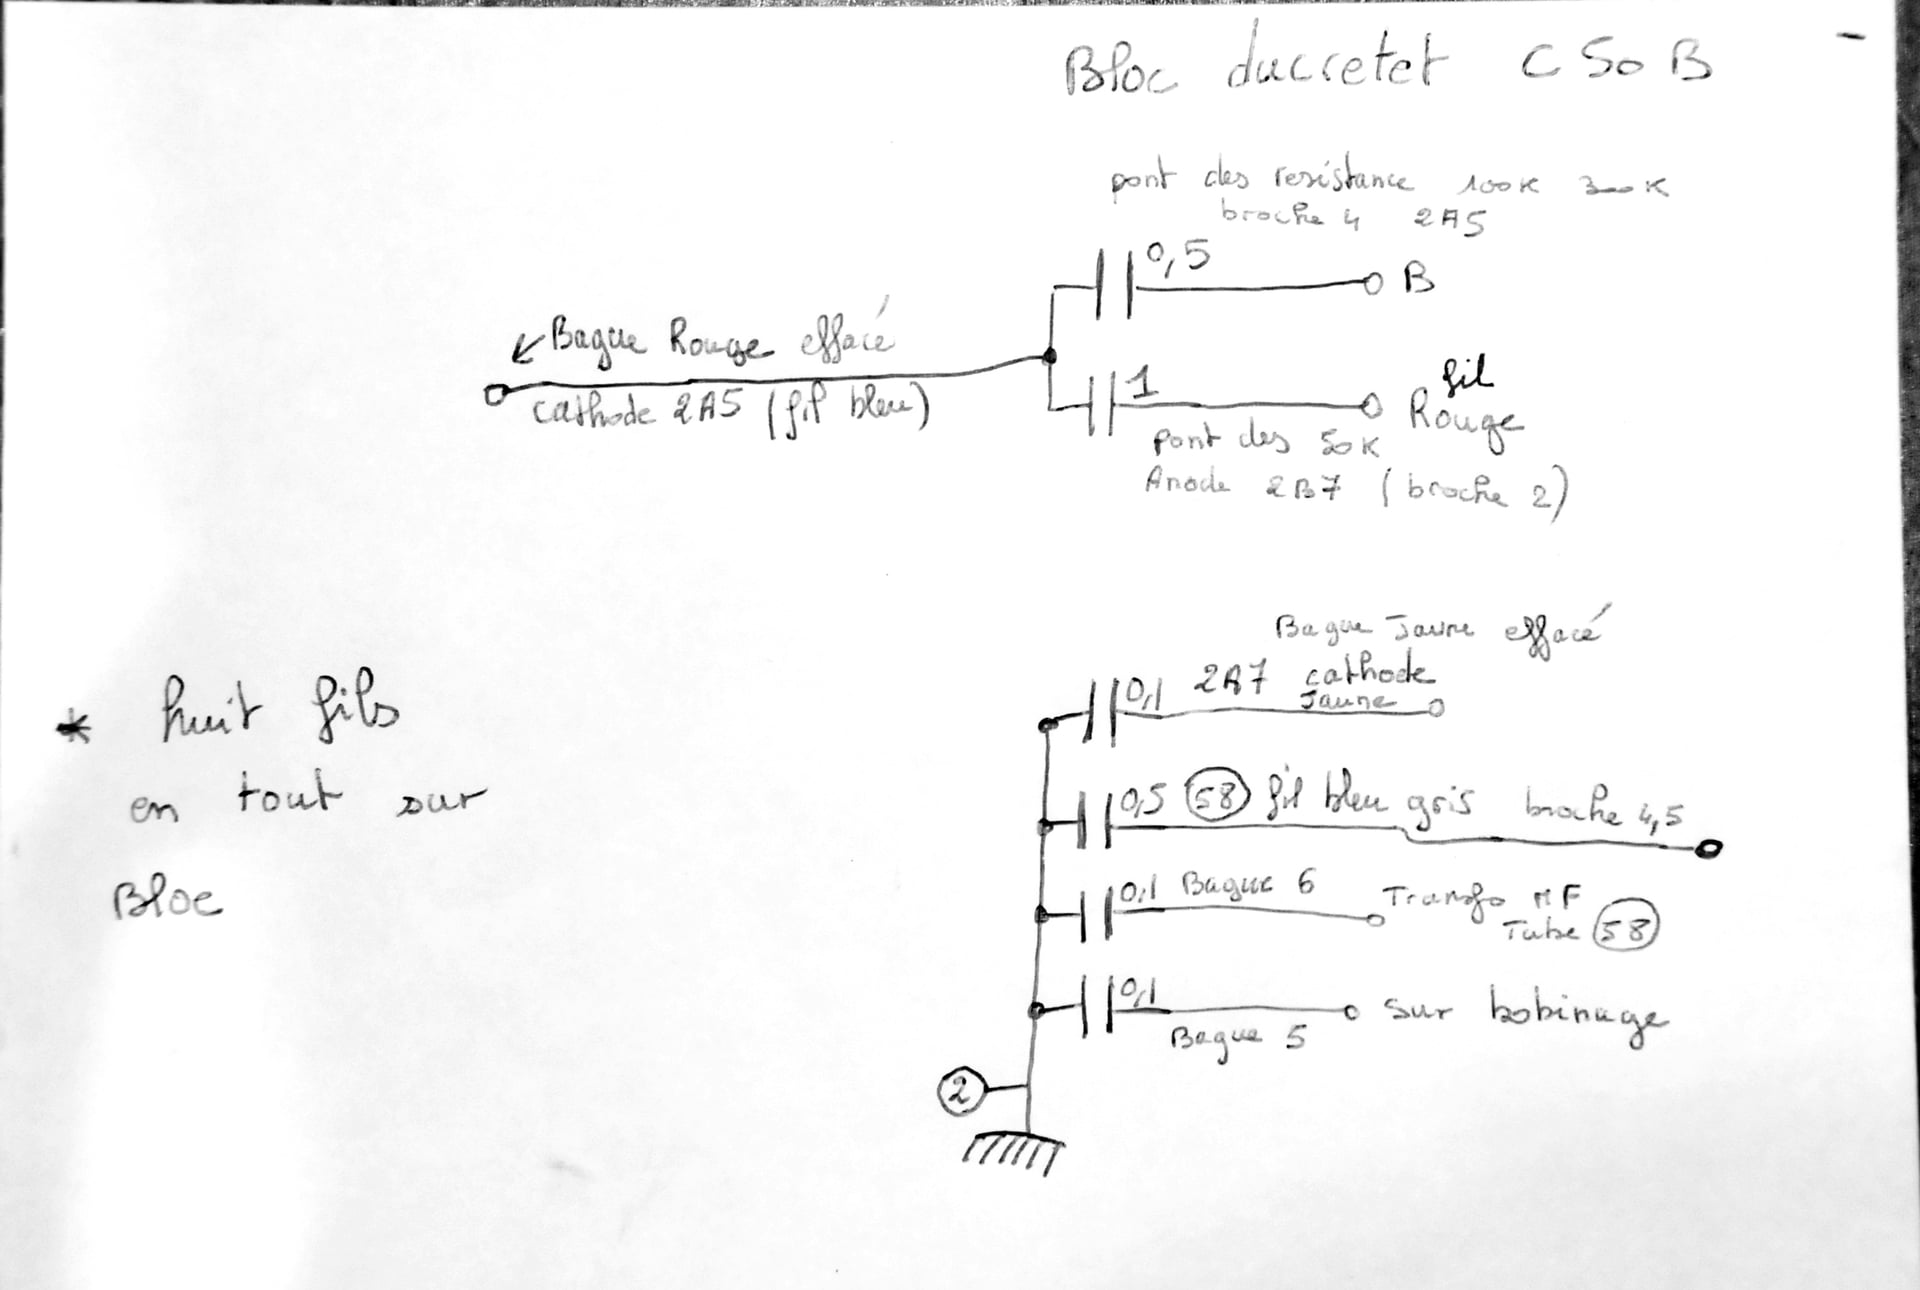 Bloc ducretet C50B
pont des resistance 100K 300K
broche 4 2A5
0,5
B
Bague Rouge effacé
cathode 2A5 (fil bleu)
1
fil
Rouge
pont des 50K
Anode 2B7 (broche 2)
Bague Jaune effacé
0,1 2A7 cathode
Jaune
* huit fils
en tout sur
Bloc
0,5 58 fil bleu gris broche 4,5
0,1 Bague 6 Transfo MF
Tube 58
0,1 sur bobinage
Bague 5
2